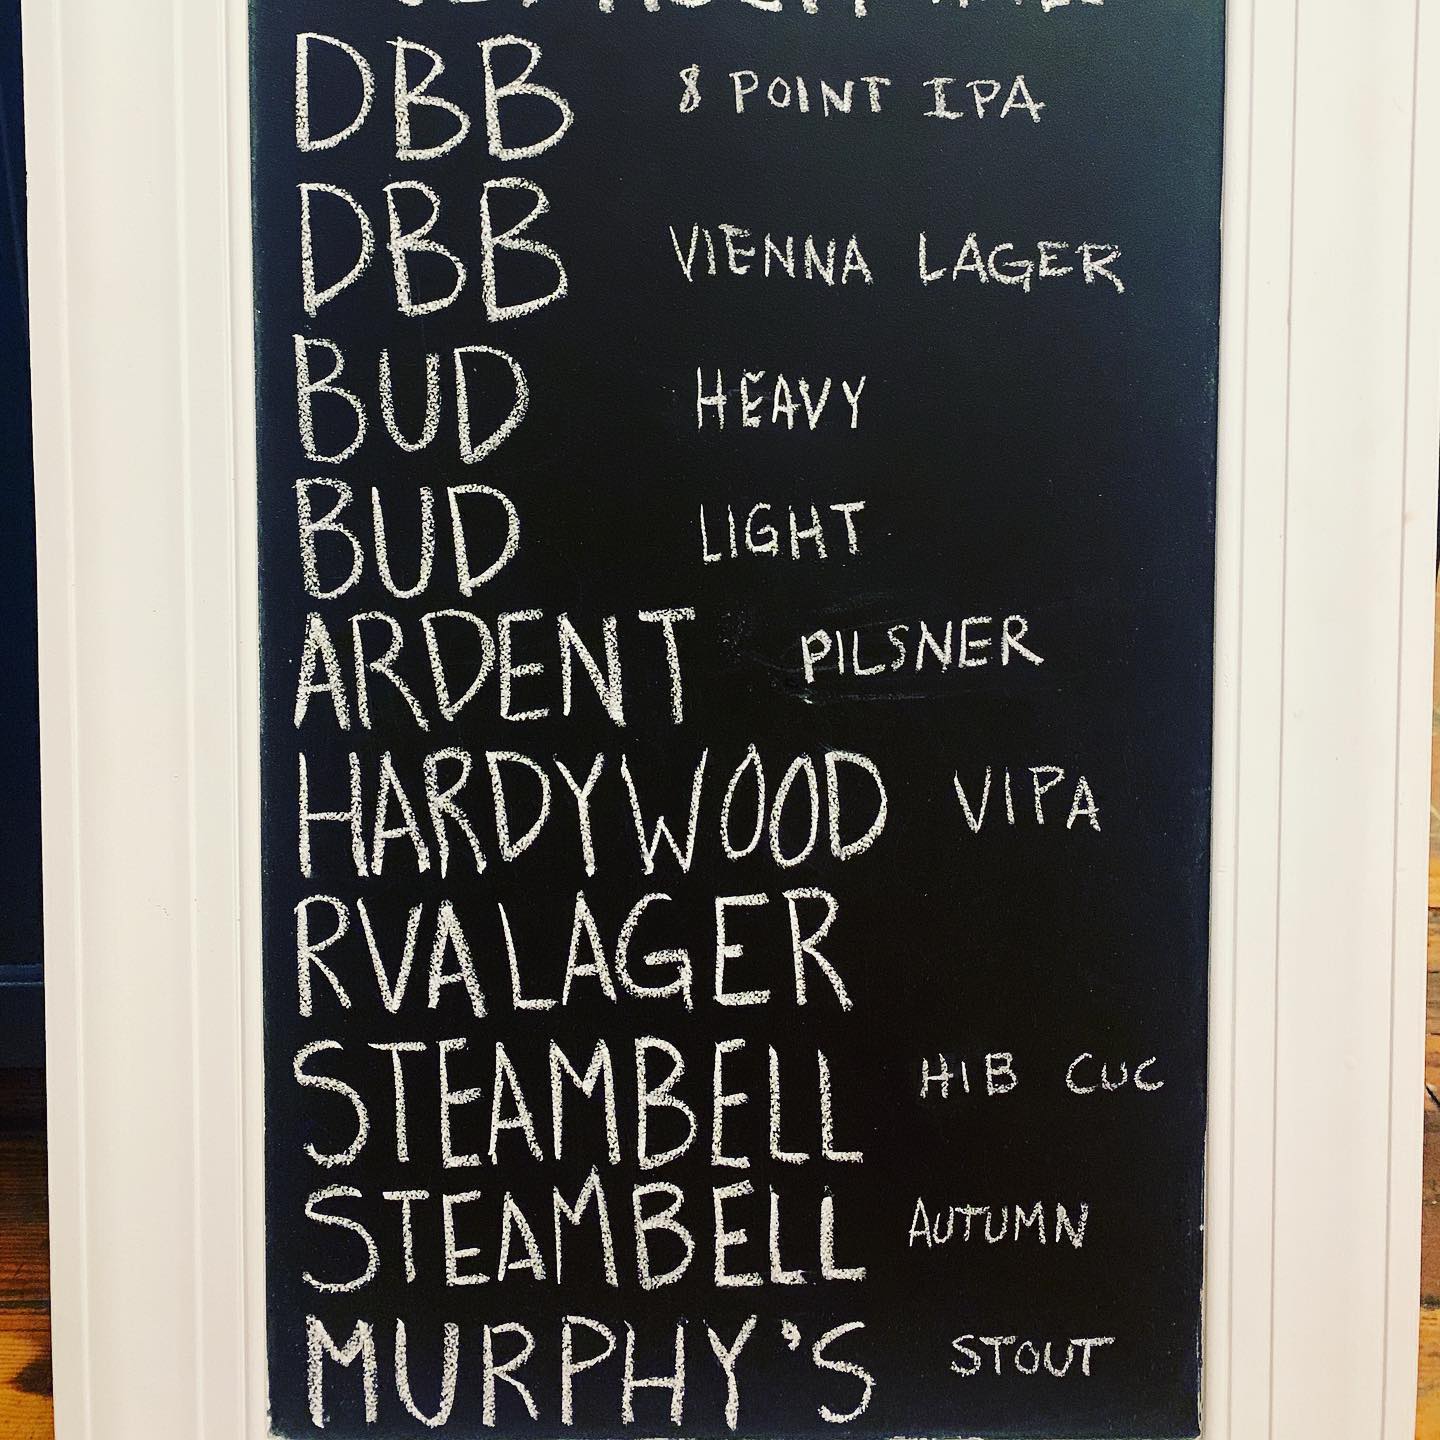 DBB 8 POINT IPA
DBB VIENNA LAGER
BUD HEAVY
BUD LIGHT
ARDENT PILSNER
HARDYWOOD VIPA
RVA LAGER
STEAMBELL HIB CUC
STEAMBELL AUTUMN
MURPHY'S STOUT